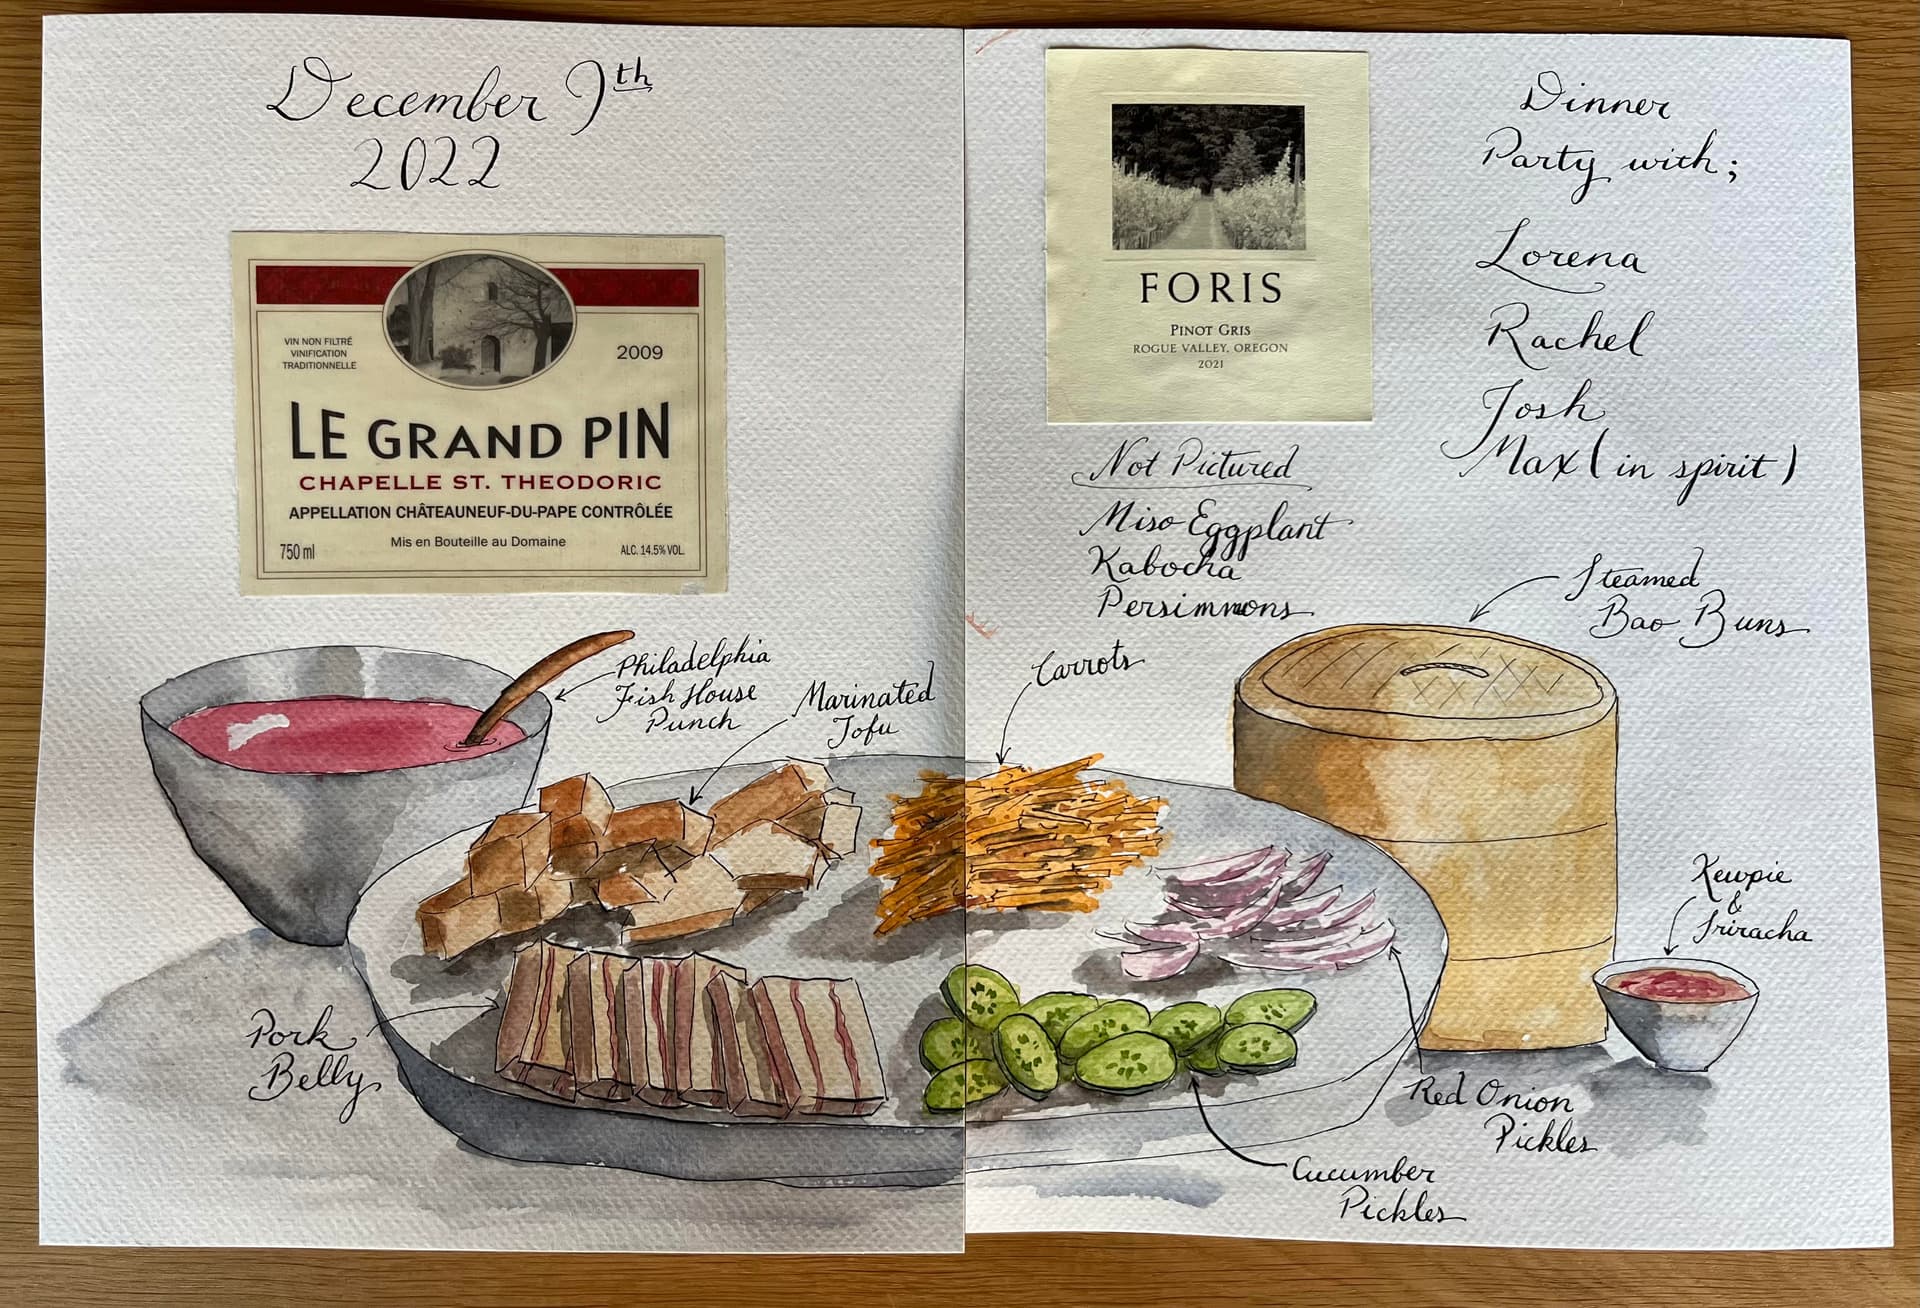 December 9th
2022
VIN NON FILTRÉ
VINIFICATION
TRADITIONNELLE
2009
LE GRAND PIN
CHAPELLE ST. THEODORIC
APPELLATION CHÂTEAUNEUF-DU-PAPE CONTRÔLÉE
Mis en Bouteille au Domaine
750 ml
ALC. 14.5% VOL.
Philadelphia
Fish House
Punch
Marinated
Tofu
Pork
Belly
FORIS
PINOT GRIS
ROGUE VALLEY, OREGON
2021
Dinner
Party with;
Lorena
Rachel
Josh
Max (in spirit)
Not Pictured
Miso Eggplant
Kabocha
Persimmons
Carrots
Steamed
Bao Buns
Kewpie
&
Sriracha
Red Onion
Pickles
Cucumber
Pickles